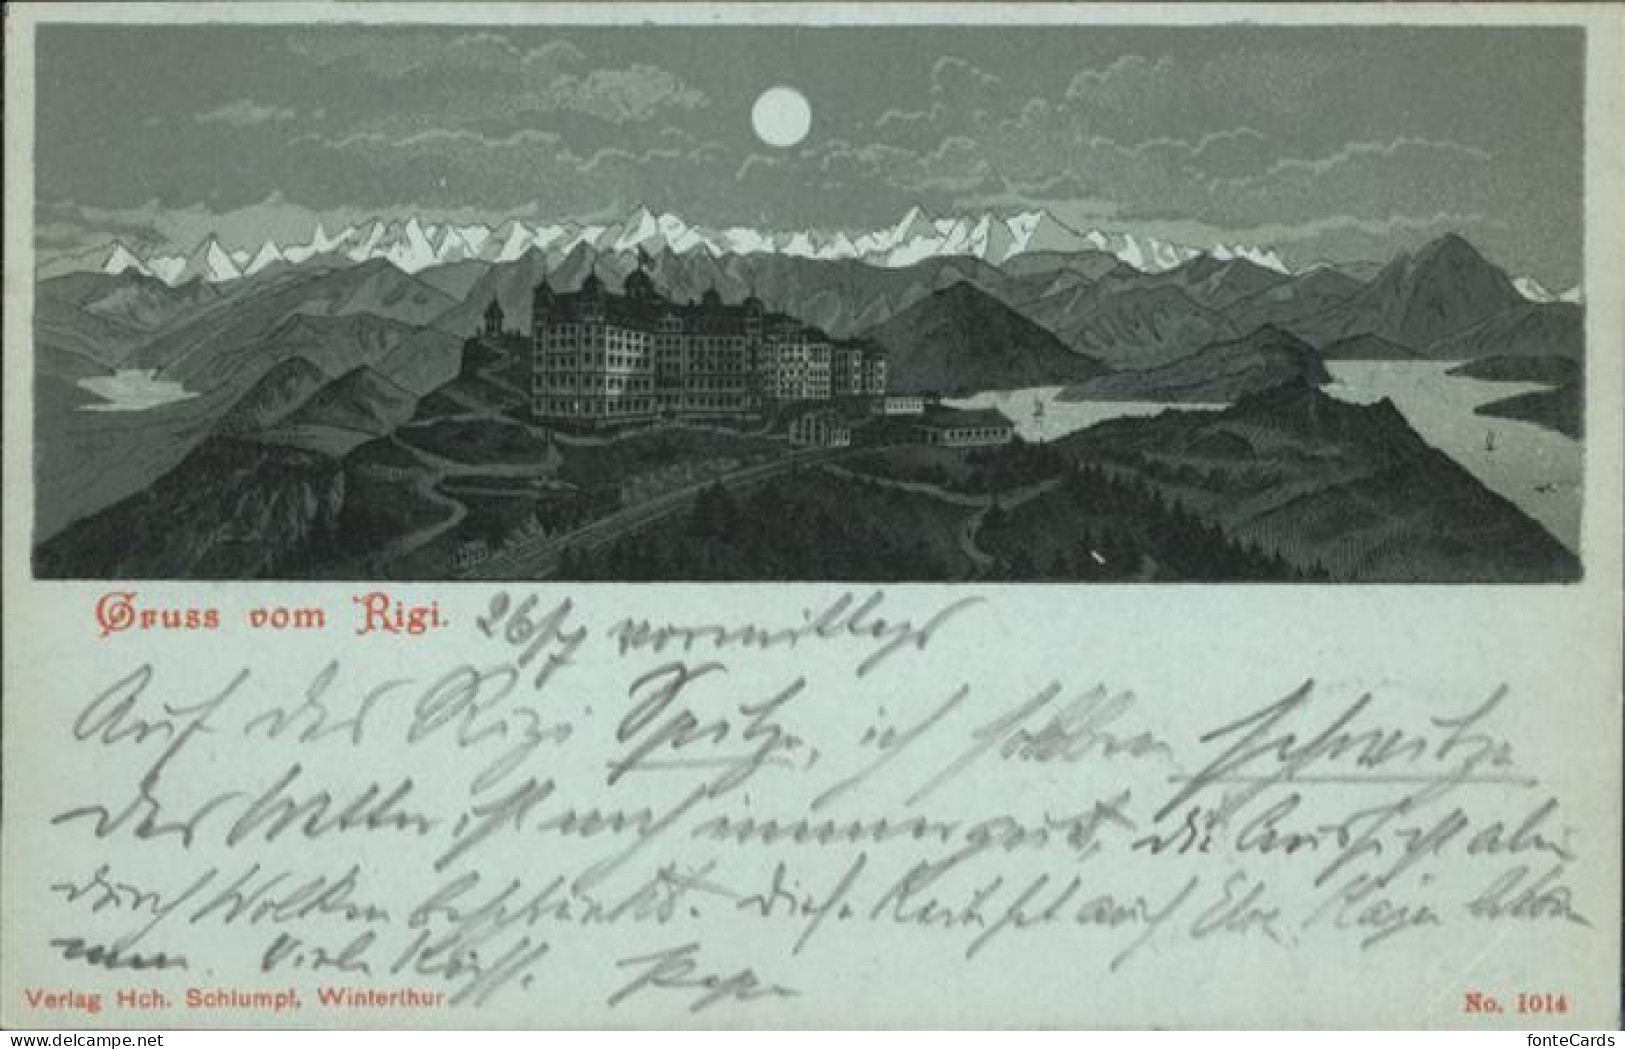 Gruss vom Rigi. 26/7 vormittags
Auf der Rigi Spitze, ich
das Wetter ist noch immer gut, die Aussicht aber
durch Wolken beschränkt. Diese Karte hat auch
Viele Küsse. Papa
Verlag Hch. Schlumpf, Winterthur
No. 1014
delcampe.net
fonteCards